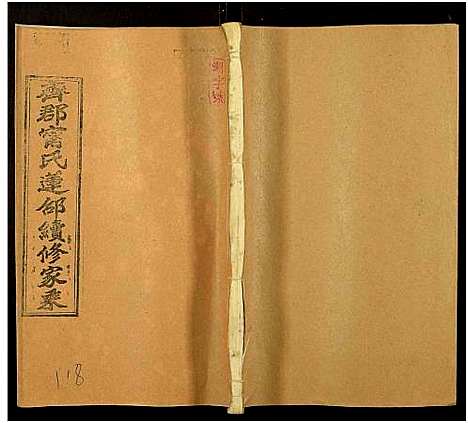 齊郡甯氏蓮邵續修家乘
118